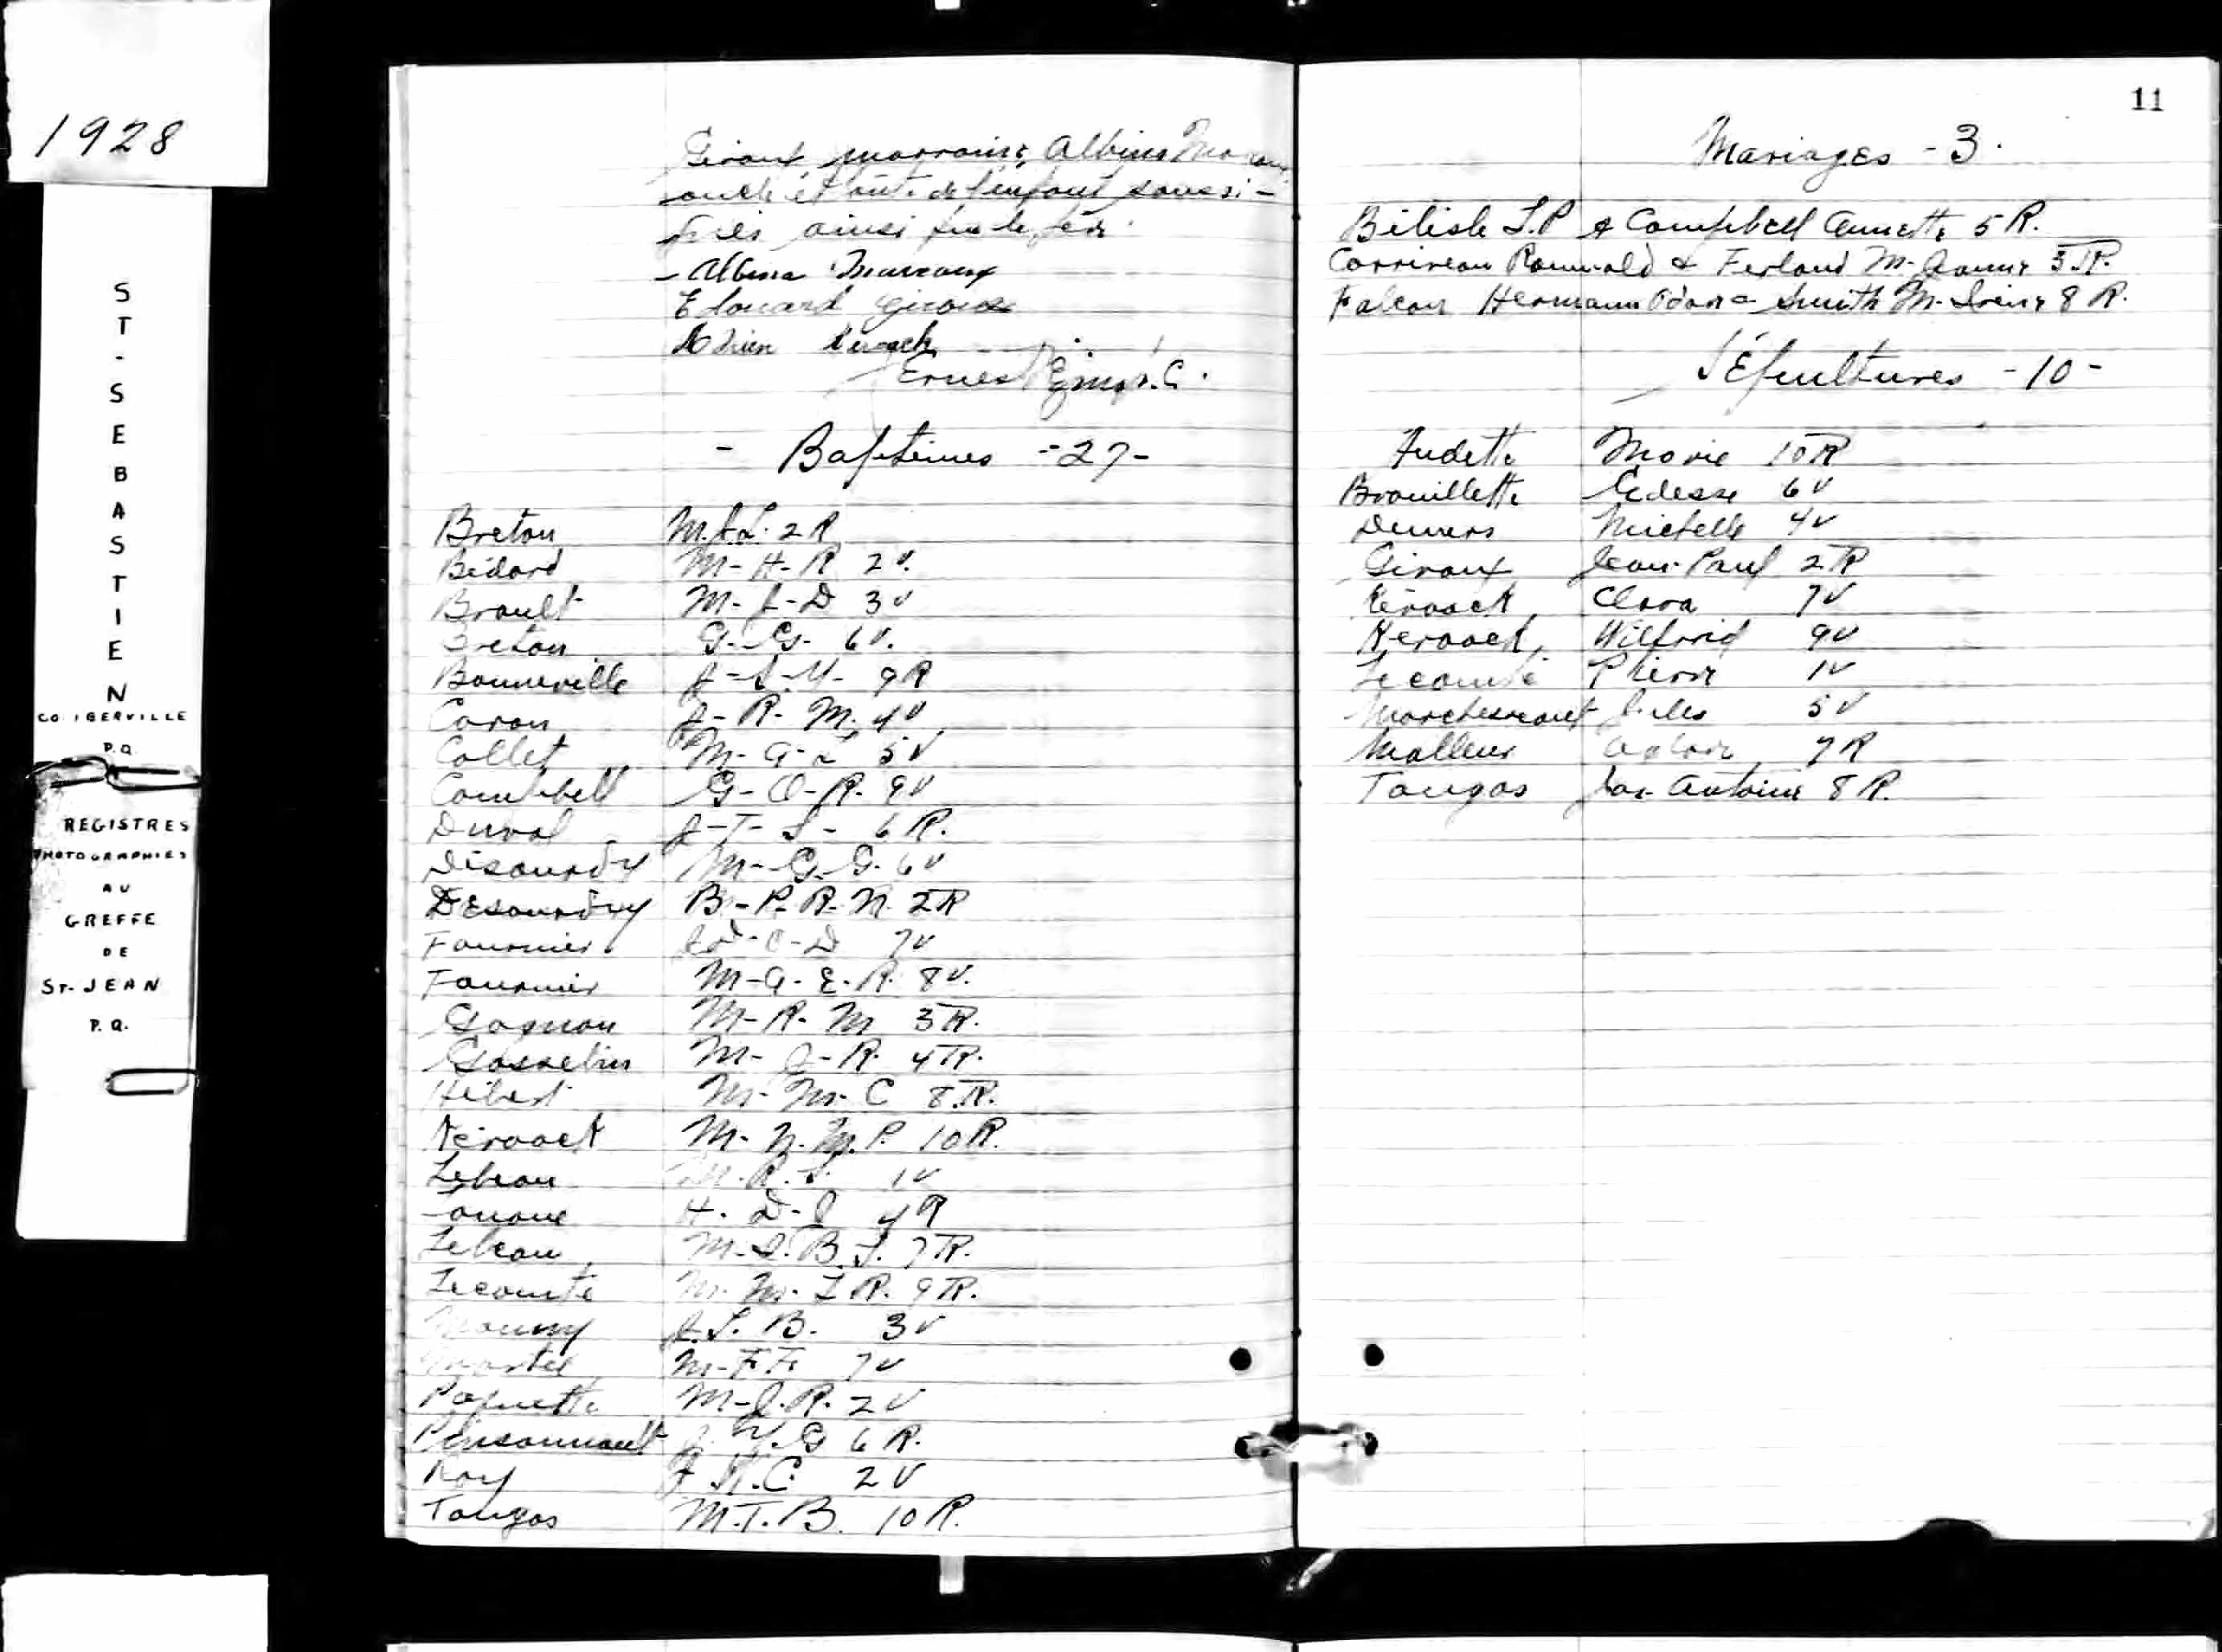 1928
ST-SEBASTIEN
CO. IBERVILLE
P.Q.
REGISTRES
PHOTOGRAPHIES
AU
GREFFE
DE
ST-JEAN
P.Q.
Giroux marraine, Albina
oncle et de l'enfant soussi-
gnés ainsi que le père.
- Albina Marcoux
Edouard Giroux
Adrien Kerouack
Ernest
- Baptêmes - 27 -
Breton M. J. L. 2 R
Bédard M - H - R 2 V.
Brault M - J - D 3 V
Breton G - G - 6 V.
Bonneville J - S - Y - 9 R
Caron J - R - M. 4 V
Collet M - A - L 5 V
Campbell G - O - R. 9 V
Duval J - T - S - 6 R.
Désourdy M - G. G. 6 V
Désourdy B - P. R. N. 2 R
Fournier C - D 7 V
Fournier M - A - E. R. 8 V.
Gagnon M - R - M 3 R.
Gosselin M - J - R. 4 R.
Hébert M - M - C 8. R.
Kérouack M - N. M. P. 10 R.
Lebeau M. R. 1 V
Lanoue H. D - J 4 R
Lebeau M - J. B. J. 7 R.
Lecomte M. M. L R. 9 R.
J. L. B. 3 V
Martel M - F F. 7 V
Paquette M - J. R. 2 V
Pinsonnault J. Y. G 6 R.
Roy J. N. C. 2 V
Tougas M. T. B. 10 R.
11
Mariages - 3.
Bélisle L. P & Campbell Annette 5 R.
Corriveau Romuald & Ferland M - Jeanne 3 R.
Falcon Hermann & Smith M - Irène 8 R.
Sépultures - 10 -
Audette Marie 10 R
Brouillette Edesse 6 V
Demers Michelle 4 V
Giroux Jean-Paul 2 R
Kérouack Clara 7 V
Kerouack Wilfrid 9 V
Lecomte Pierre 1 V
Marchessault Jules 5 V
Mailleur 7 R
Tougas Antoine 8 R.